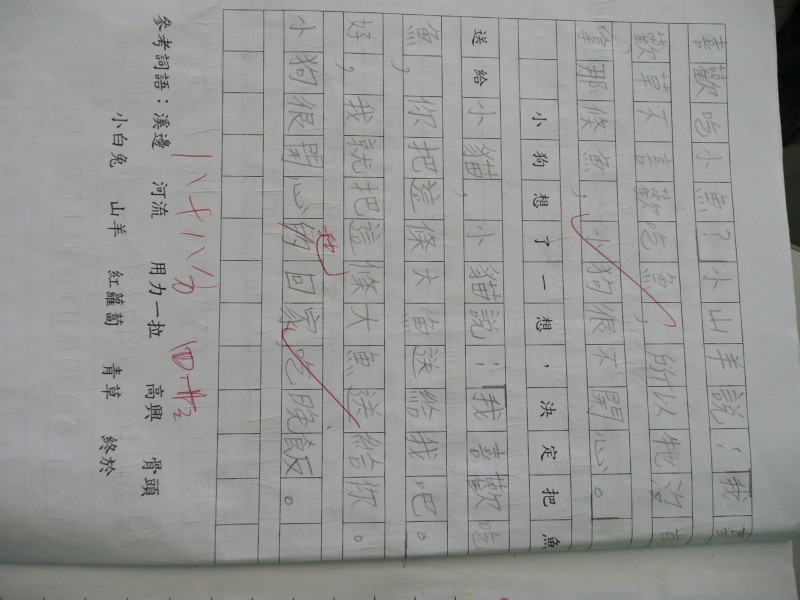 喜歡吃小魚？小山羊說：「我喜
歡草不喜歡吃魚，所以牠沒
拿那條魚，小狗很不開心。」
小狗想了一想，決定把魚
送給小貓，小貓說：「我喜歡吃
魚，你把這條大魚送給我吧。
好，我就把這條大魚送給你。
小狗很開心的回家吃晚飯。
地
八十八分
參考詞語：溪邊 河流 用力一拉 高興 骨頭
小白兔 山羊 紅蘿蔔 青草 終於